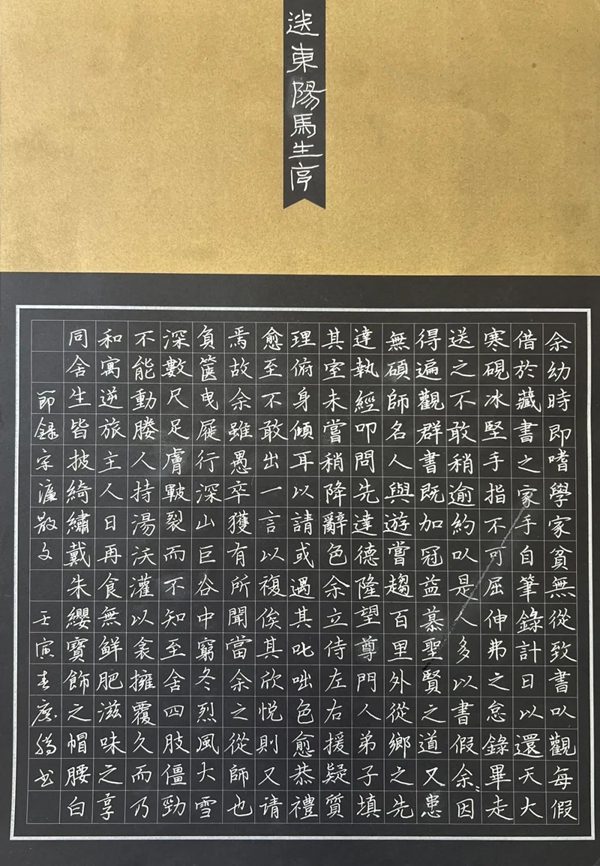 送東陽馬生序
余幼時即嗜學家貧無從致書以觀每假
借於藏書之家手自筆錄計日以還天大
寒硯冰堅手指不可屈伸弗之怠錄畢走
送之不敢稍逾約以是人多以書假余因
得遍觀群書既加冠益慕聖賢之道又患
無碩師名人與遊嘗趨百里外從鄉之先
達執經叩問先達德隆望尊門人弟子填
其室未嘗稍降辭色余立侍左右援疑質
理俯身傾耳以請或遇其叱咄色愈恭禮
愈至不敢出一言以複俟其欣悅則又請
焉故余雖愚卒獲有所聞當余之從師也
負篋曳屣行深山巨谷中窮冬烈風大雪
深數尺足膚皸裂而不知至舍四肢僵勁
不能動媵人持湯沃灌以衾擁覆久而乃
和寓逆旅主人日再食無鮮肥滋味之享
同舍生皆披綺繡戴朱纓寶飾之帽腰白
節錄宋濂散文 壬寅春 书